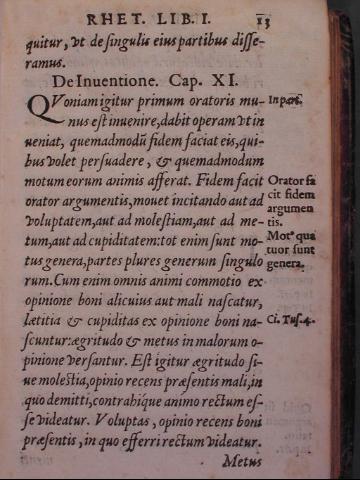 RHET. LIB. I. 13
quitur, vt de singulis eius partibus disse-
ramus.
De Inuentione. Cap. XI.
QVoniam igitur primum oratoris mu-
nus est inuenire, dabit operam vt in
ueniat, quemadmodũ fidem faciat eis, qui-
bus volet persuadere, & quemadmodum
motum eorum animis afferat. Fidem facit
orator argumentis, mouet incitando aut ad
voluptatem, aut ad molestiam, aut ad me-
tum, aut ad cupiditatem: tot enim sunt mo-
tus genera, partes plures generum singulo
rum. Cum enim omnis animi commotio ex
opinione boni alicuius aut mali nascatur,
lætitia & cupiditas ex opinione boni na-
scuntur: ægritudo & metus in malorum o-
pinione versantur. Est igitur ægritudo si-
ue molestia, opinio recens præsentis mali, in
quo demitti, contrahiq́ue animo rectum es-
se videatur. Voluptas, opinio recens boni
præsentis, in quo efferri rectum videatur.
Metus
In part.
Orator fa
cit fidem
argumen
tis.
Motꝰ qua
tuor sunt
genera.
Ci. Tus. 4.